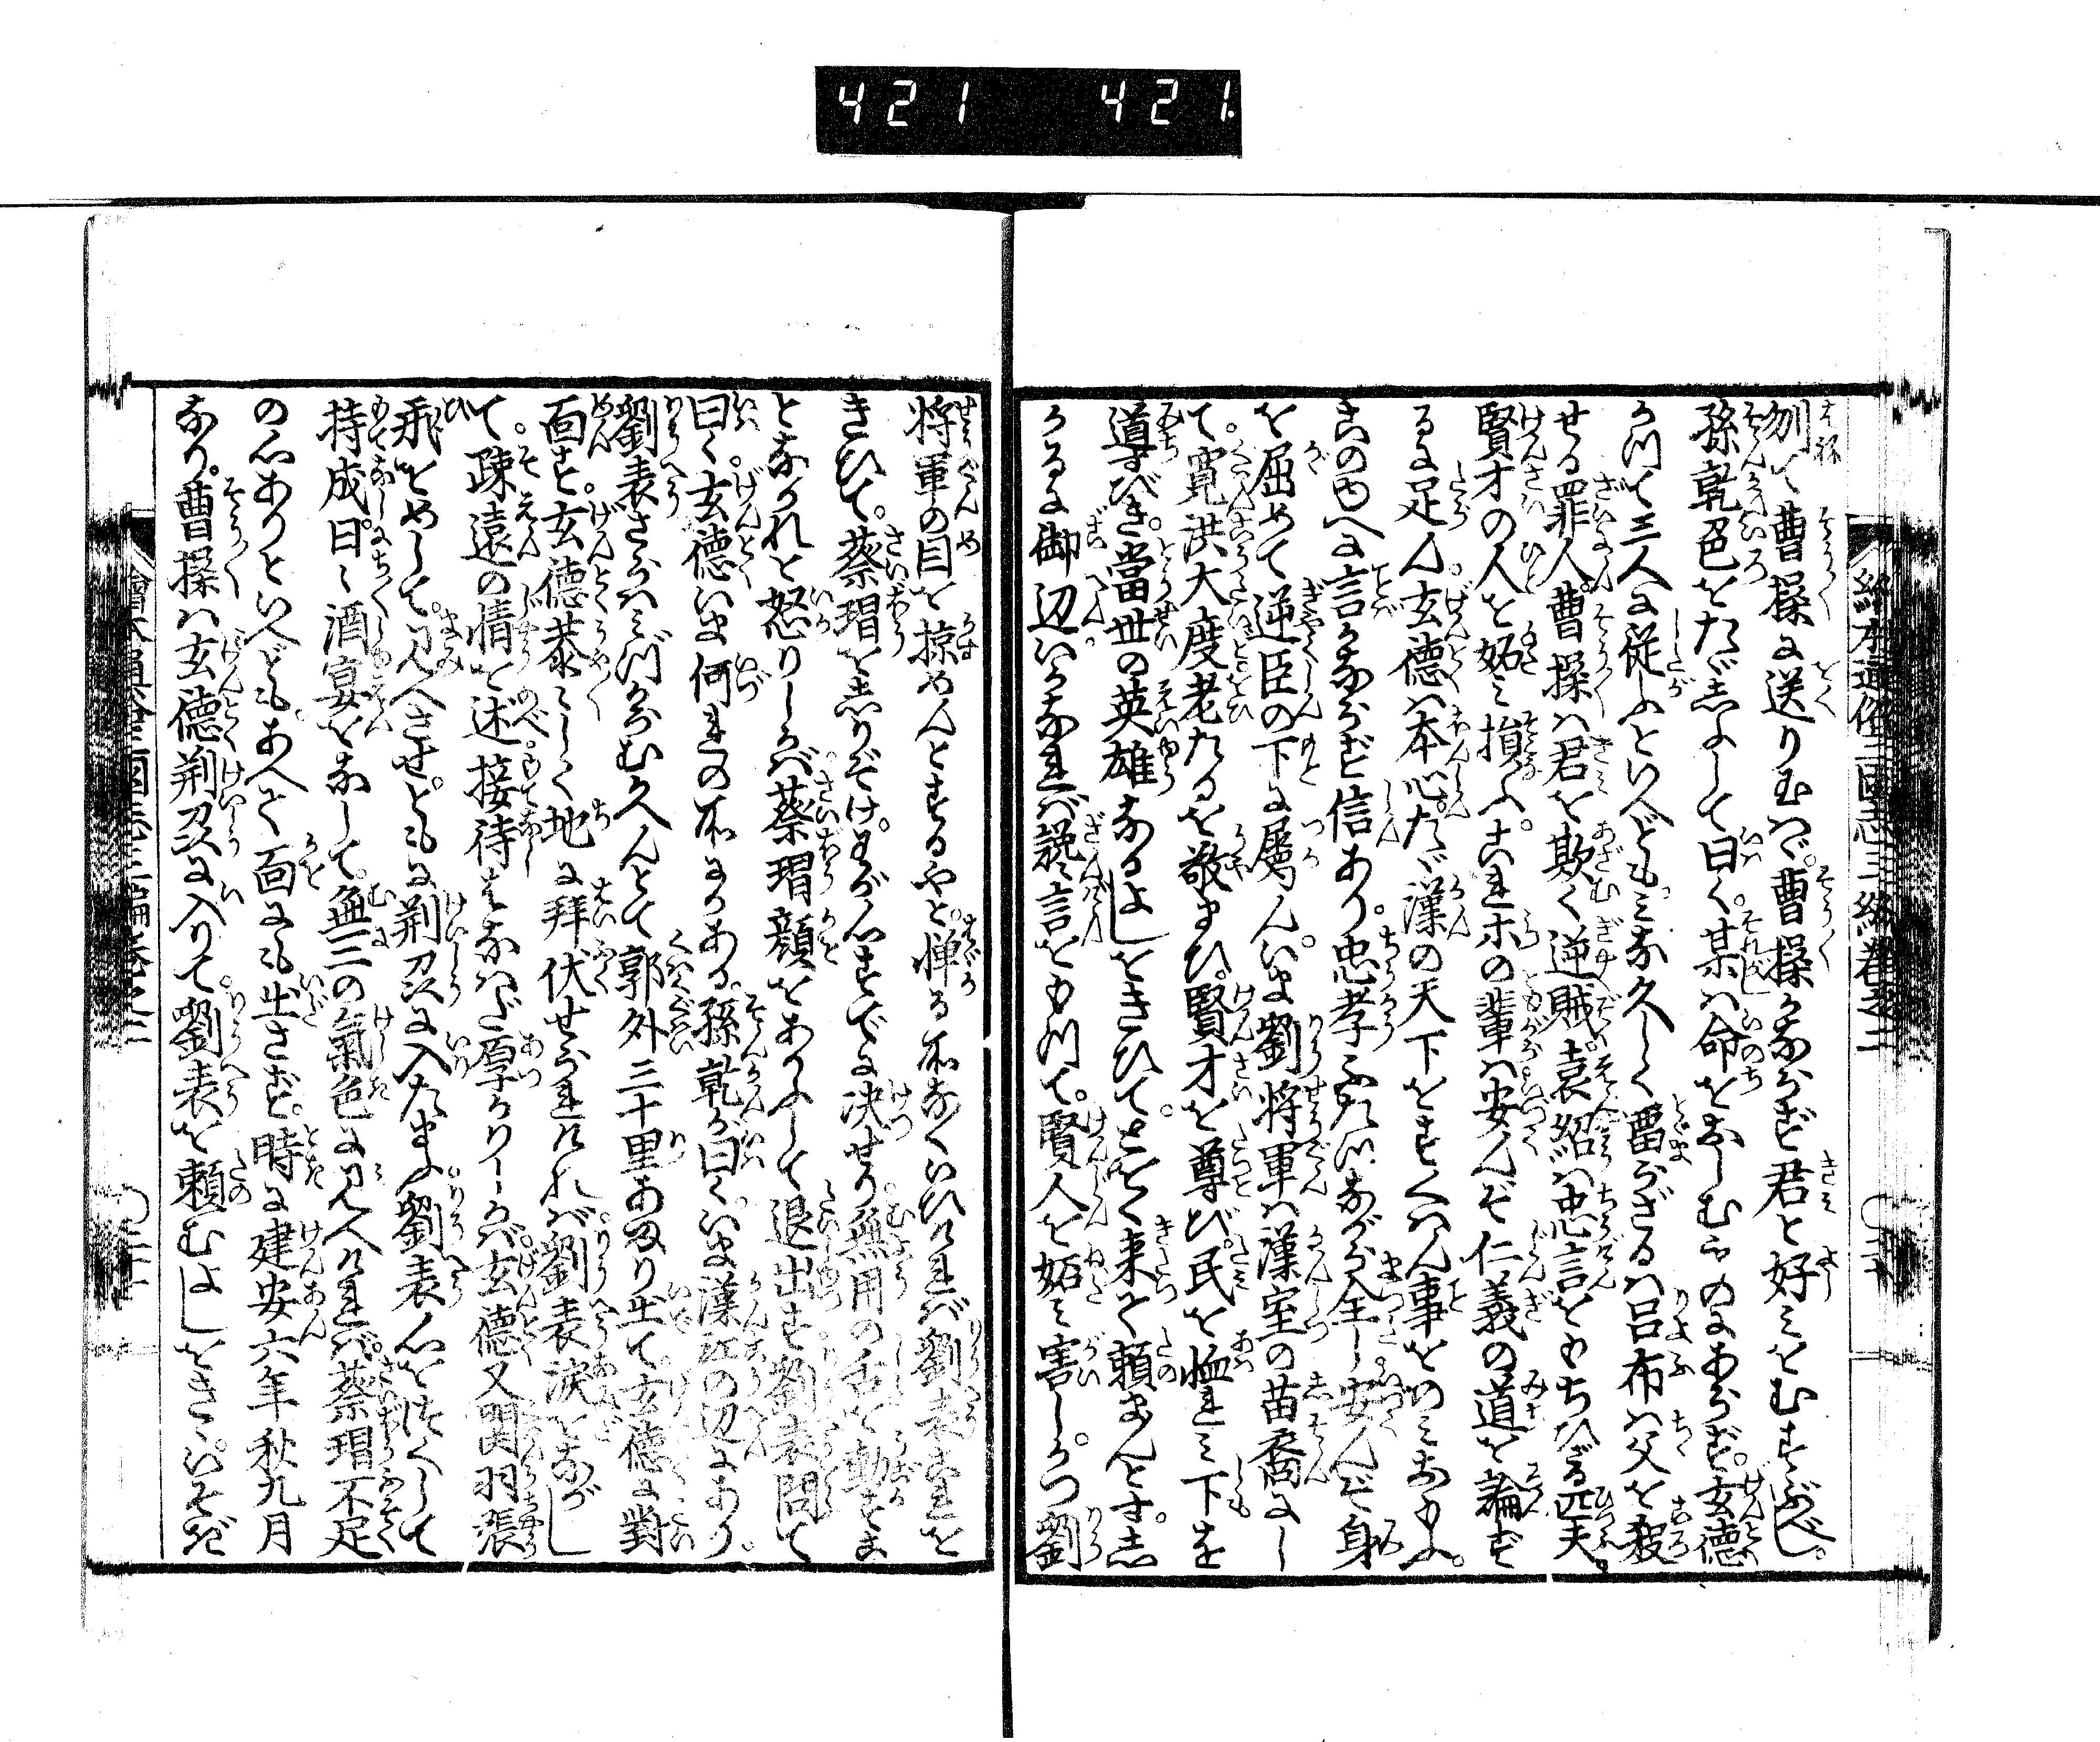 421 421.
絵本通俗三國志三編巻之二
刎て曹操に送り玉はゞ曹操かならず君と好みをむすぶべし。玄徳
孫乾色をたゞしふして曰く。某は命をおしむものにあらず。玄徳
かつて三人に従ふといへども。みな久しく畱らざるは呂布は父を殺
せる罪人。曹操は君を欺く逆賊。袁紹は忠言をもちひざる匹夫。
賢才の人を妬み損ふ。これホの輩は安んぞ仁義の道を論ず
るに足ん。玄徳は本心たゞ漢の天下をすくはん事をのみおもふ。
このゆへに言かならず信あり。忠孝ふたつながら全し安んぞ身
を屈めて逆臣の下に屬ん。いま劉将軍は漢室の苗裔にし
て。寛洪大度老たるを敬まひ。賢才を尊び。民を恤れみ下を
道びき。當世の英雄なるよしをきひて。とをく来て頼まんとす。志
かるに御辺いかなれば讒言をもつて。賢人を妬み害しかつ劉
将軍の目を掠めんとするやと。憚る所なくいひければ劉表これを
きひて。蔡瑁をしりぞけ。わが心すでに決せり無用の舌を動すま
となかれと怒りしかば。蔡瑁顔をあかふして退出す。劉表問て
曰く。玄徳いま何れの所にかある。孫乾が曰く。いま漢江の辺にあり。
劉表さらばみづからむかへんとて郭外三十里あまり出て。玄徳に對
面す。玄徳恭しく地に拜伏せられければ。劉表涙をながし
て。疎遠の情を述。接待はなはだ厚かりしかば。玄徳又関羽張
飛をめして。見へさせ。ともに荊刕に入たまふ。劉表心をつくして
持成曰々酒宴をなして。無二の氣色に見へければ。蔡瑁不足
の心ありといへども。あへて面にも出さず。時に建安六年秋九月
なり。曹操は玄徳荊刕に入りて。劉表を頼むよしをきゝ。いそぎ
繪本通俗三國志三編巻之二